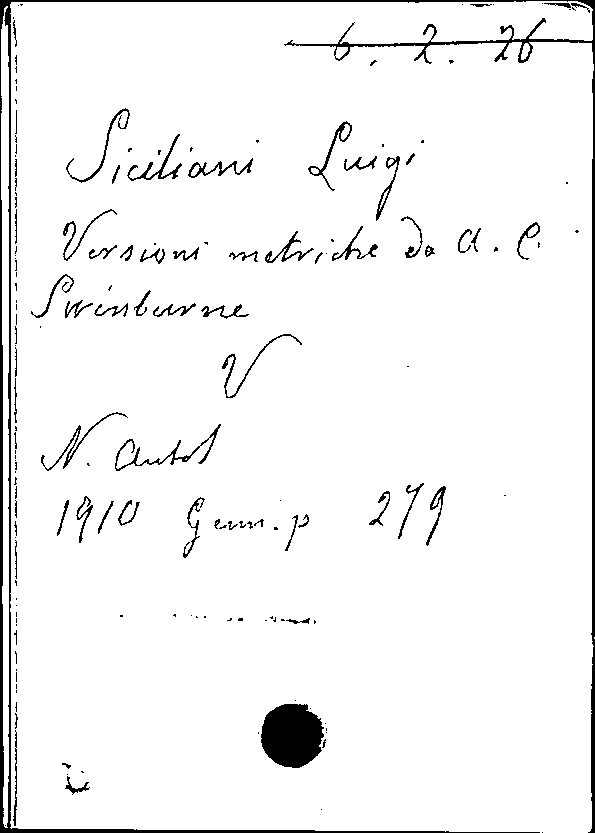 6. 2. 26
Siciliani Luigi
Versioni metriche da A. C.
Swinburne
V
N. Antol
1910 Genn. p 279